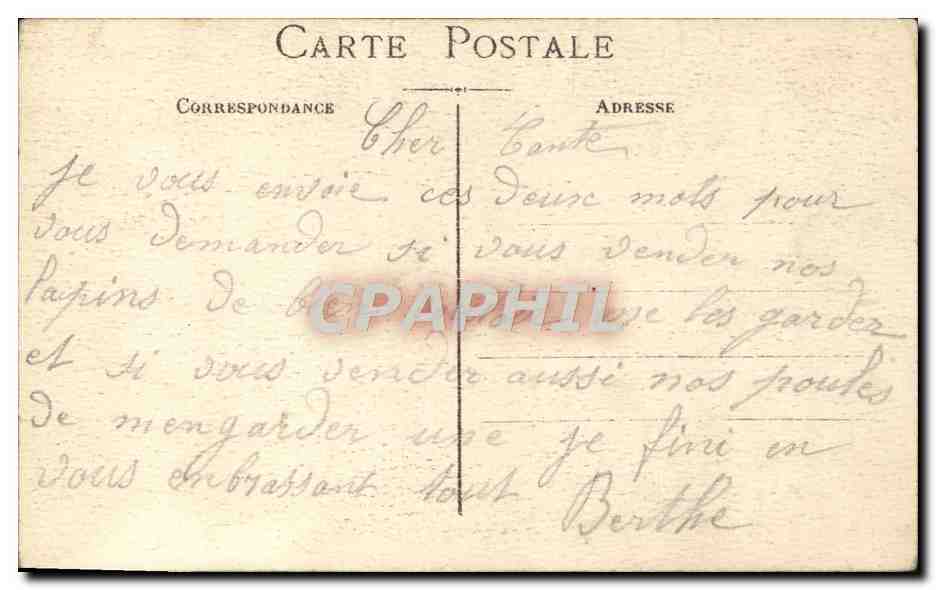 CARTE POSTALE
CORRESPONDANCE
ADRESSE
Cher Tante
je vous envoie ces deux mols pour
vous demander si vous vender nos
lapins de me les garder
CPAPHIL
et si vous vender aussi nos poules
de mengarder une je fini en
vous enbrassant tout
Berthe